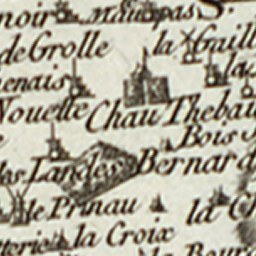 noir maupas S.
de Grolle la Gaill
enais la
Nouette Chau Thebau
Bois
les Landes Bernard
le Prinau la Ch
terie la Croix
la Bour